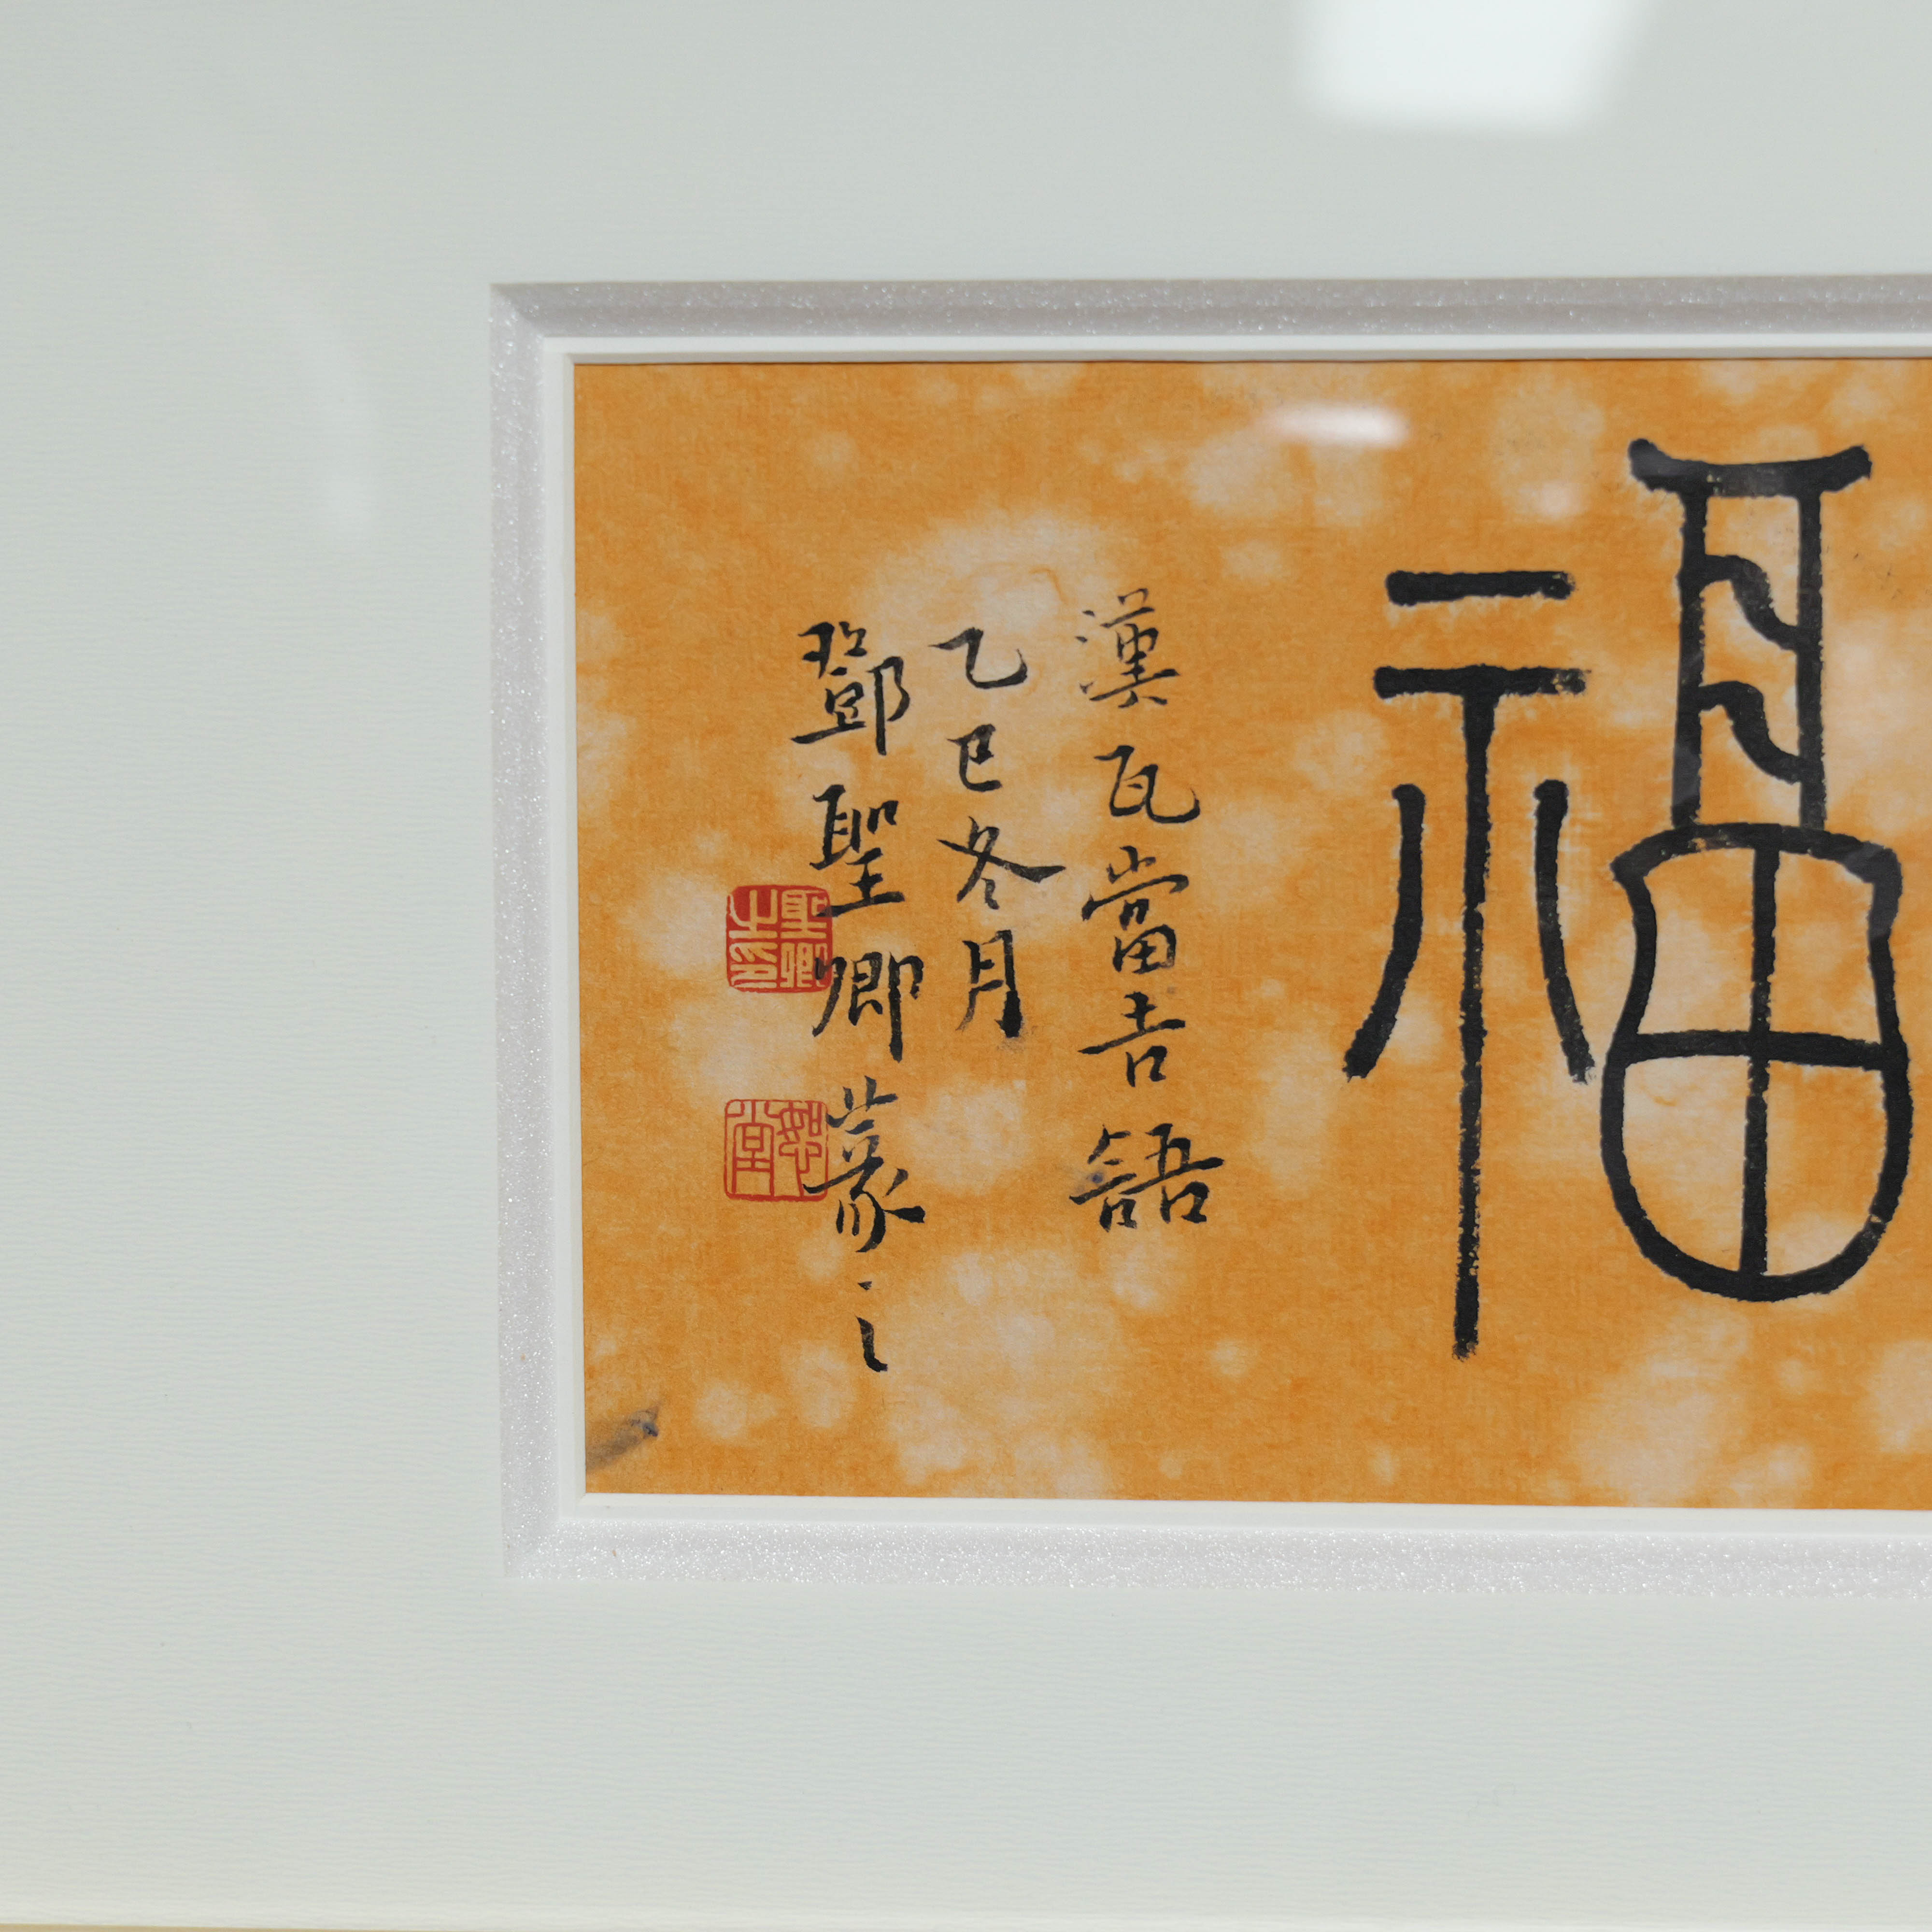 福
漢瓦當吉語
乙巳冬月
鄧聖卿篆之
聖卿之印
恕堂